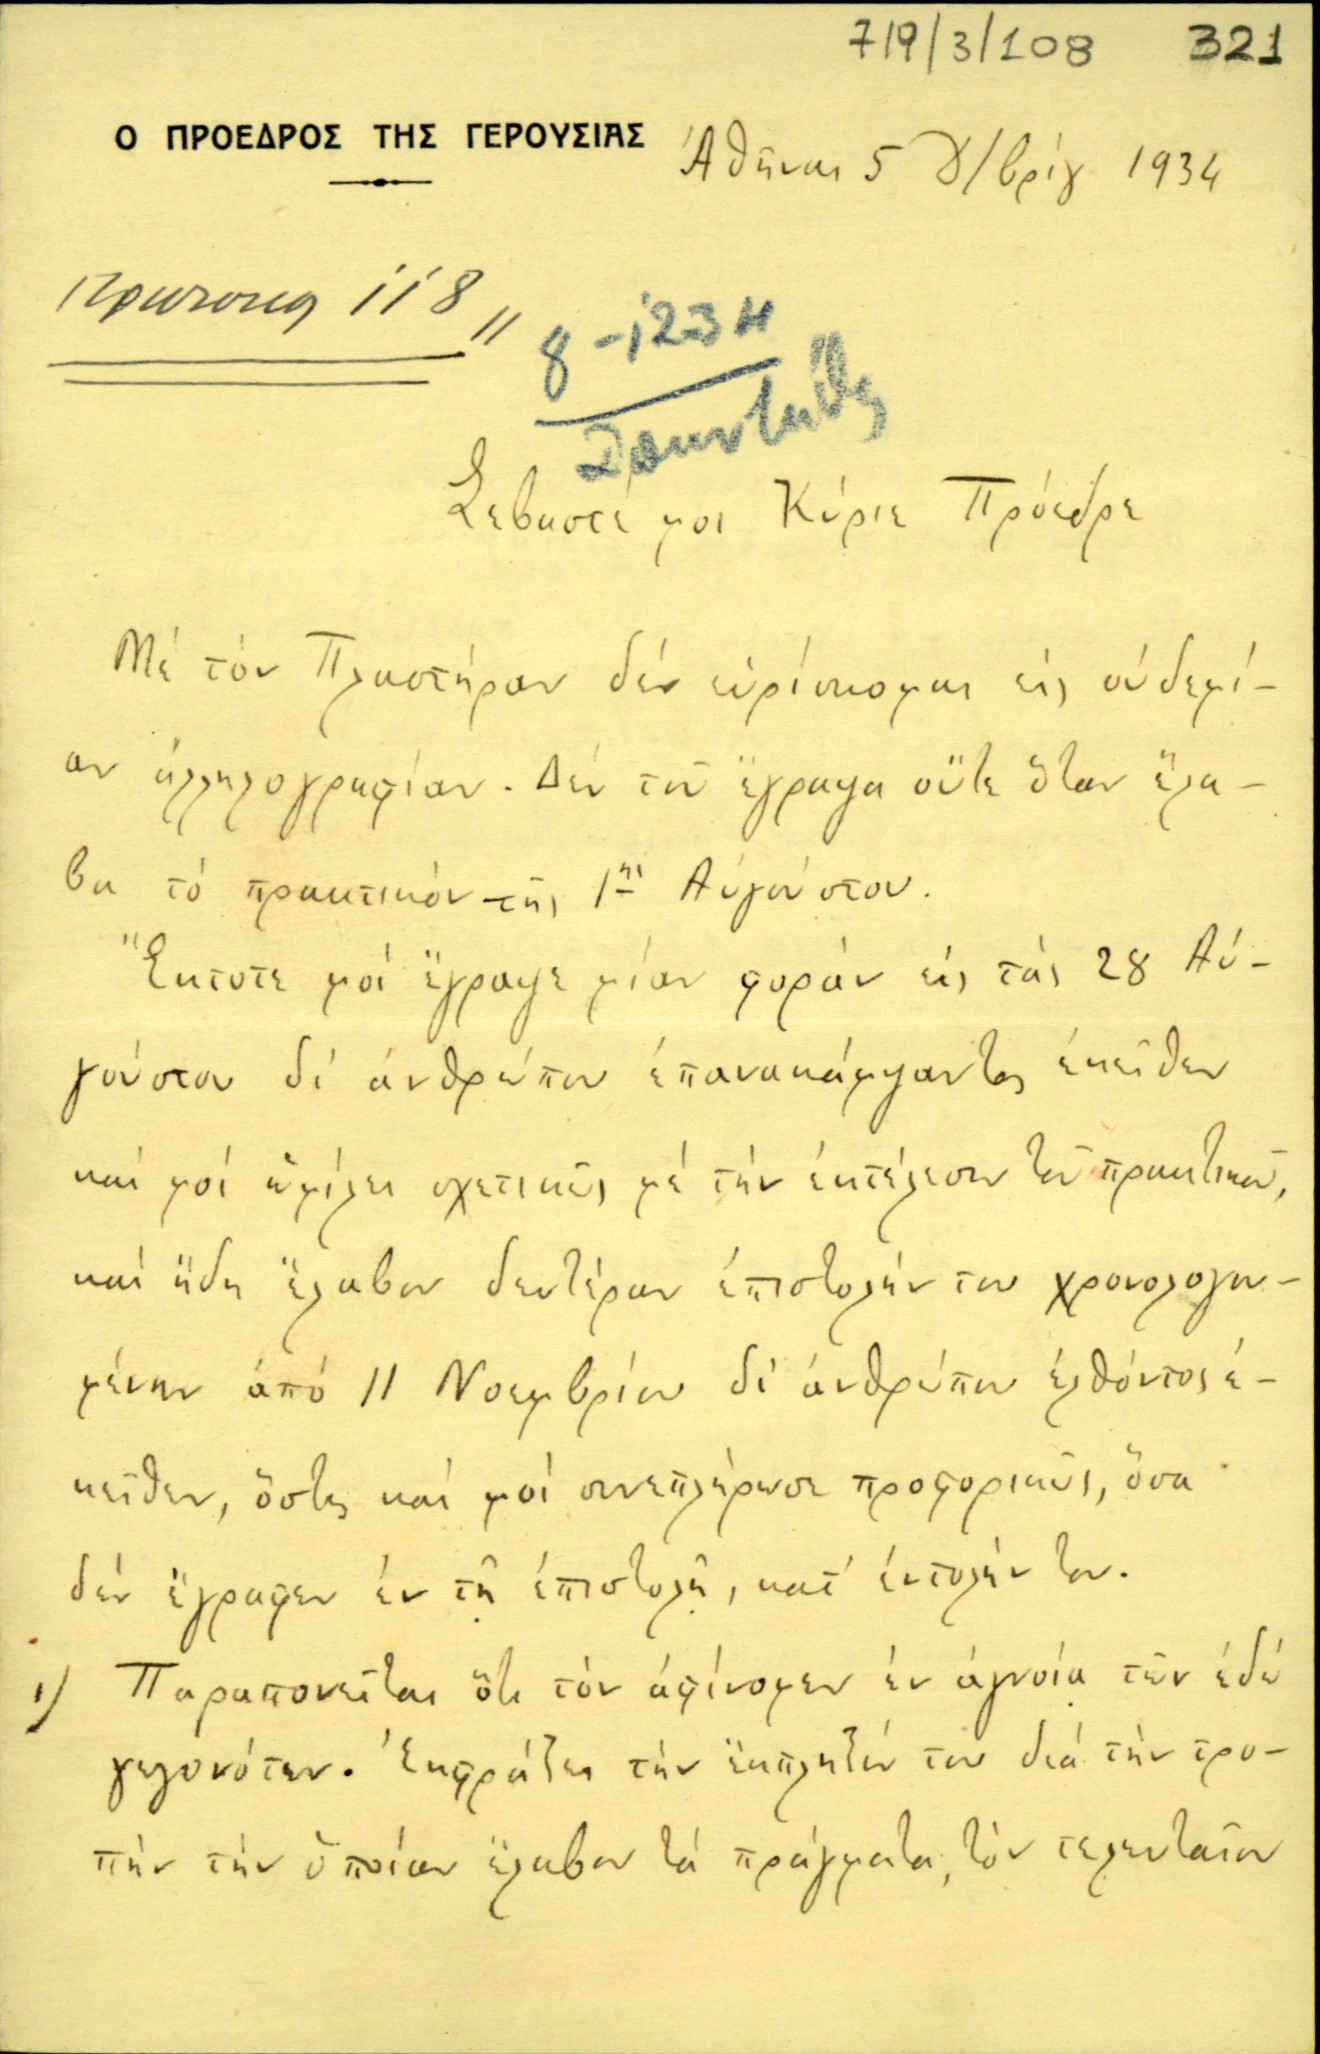 719/3/108 321
Ο ΠΡΟΕΔΡΟΣ ΤΗΣ ΓΕΡΟΥΣΙΑΣ
Ἀθῆναι 5 /βρίου 1934
118
8-12 34
Σεβαστέ μοι Κύριε Πρόεδρε
Μέ τόν Πλαστήραν δέν εὑρίσκομαι εἰς οὐδεμί-
αν ἀλληλογραφίαν. Δέν τοῦ ἔγραψα οὔτε ὅταν ἔλα-
βα τό πρακτικόν τῆς 1ης Αὐγούστου.
Ἔκτοτε μοί ἔγραψε μίαν φοράν εἰς τάς 28 Αὐ-
γούστου δι' ἀνθρώπου ἐπανακάμψαντος ἐκεῖθεν
καί μοί ὡμίλει σχετικῶς μέ τήν ἐκτέλεσιν τοῦ πρακτικοῦ,
καί ἤδη ἔλαβον δευτέραν ἐπιστολήν του χρονολογου-
μένην ἀπό 11 Νοεμβρίου δι' ἀνθρώπου ἐλθόντος ἐ-
κεῖθεν, ὅστις καί μοί συνεπλήρωσε προφορικῶς, ὅσα
δέν ἔγραφεν ἐν τῇ ἐπιστολῇ, κατ' ἐντολήν του.
1) Παραπονεῖται ὅτι τόν ἀφίνομεν ἐν ἀγνοίᾳ τῶν ἐδώ
γεγονότων. Ἐκφράζει τήν ἔκπληξίν του διά τήν τρο-
πήν τήν ὁποίαν ἔλαβον τά πράγματα, τόν τελευταῖον